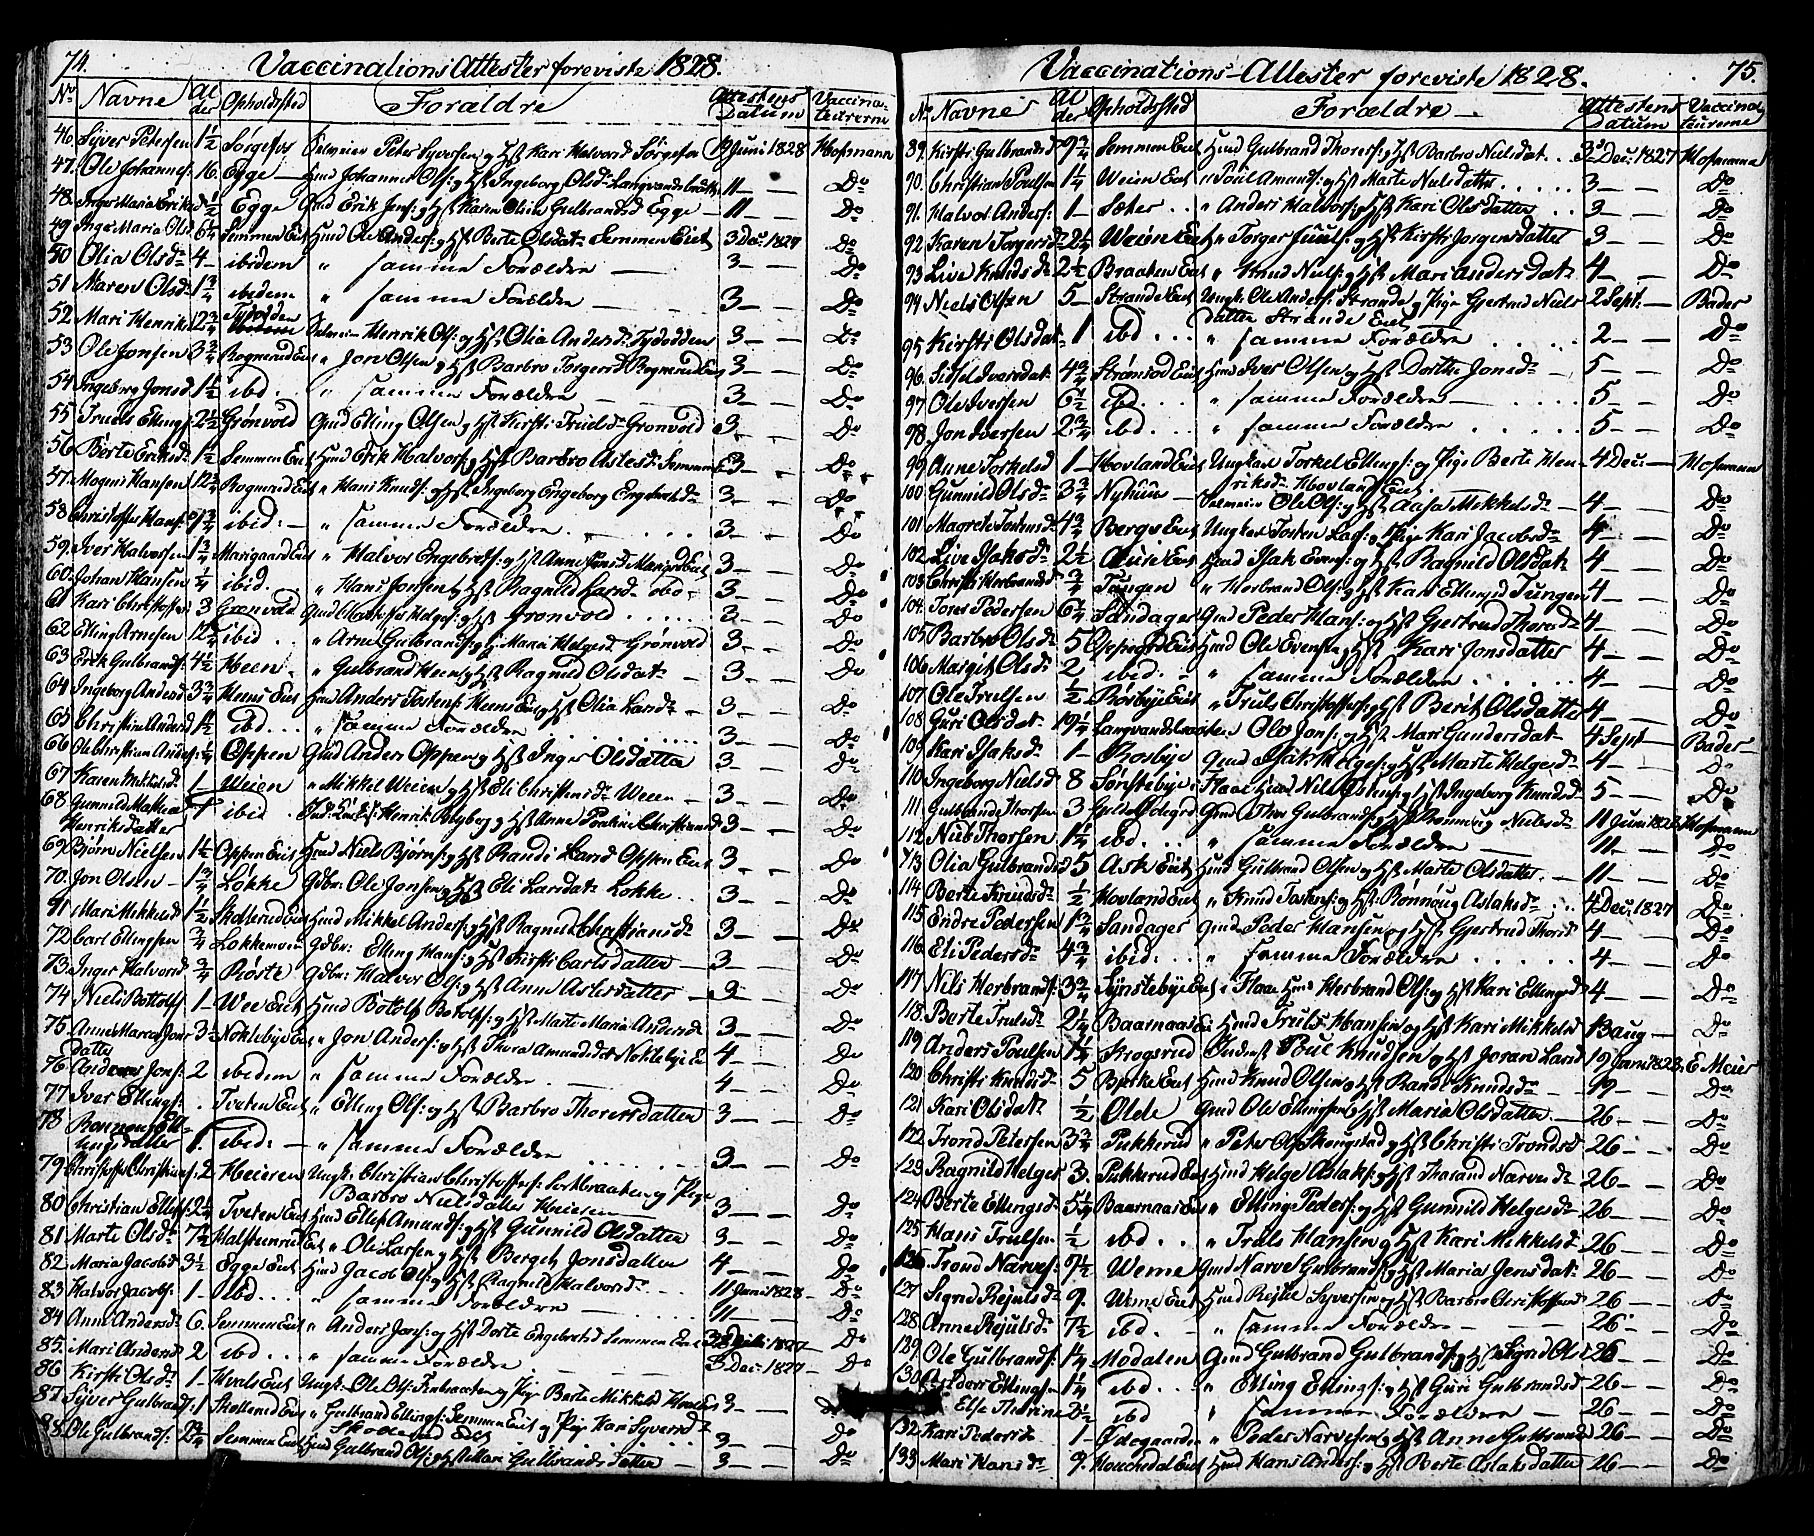 74.
Vaccinations Attester foreviste 1828.
No Navne Alder Opholdssted Forældre Attestens Datum Vaccinateurerne
46. Syver Petersen 1½ Sørgefos Peter Syversen og Hst Kari Halvorsd Sørgefos 19 Juni 1828 Hofmann
47. Ole Johannes: 16. Egge — Johannes Ols: og Hst Ingeborg Olsd: 11 — — Do
48. Inger Maria Eriksd ½ Egge Gmd Erik Jens: og Hst Karen Olia Gulbrandsd Egge — 11 — — Do
49 Inger Maria Olsd 6¼ Semmen Eiet Hmd Ole Anders: og Hst Berte Olsdat: Semmen Eiet 3 Dec: 1827 Do
50 Olia Olsdr 4 — ibidem " samme Forældre — 3 — — Do
51 Maren Olsdr 1¾ ibidem " samme Forældre — 3 — — Do
52. Mari Henriks 2¾ Henrik Ols: og Hst Olia Andersdr 3 — — Do
53 Ole Jonsen 3¾ Rogmrud Eiet " Jon Olsen og Hst Barbro Torgersd Rogmrud Eiet 3 — — Do
54 Ingeborg Jonsd 1½ ibid. " samme Forældre — 3 — — Do
55 Truls Ellings 2½ Grønvold Gmd Elling Olsen og Hst Kirsti Trulsdr Grønvold 3 — — Do
56 Berte Eriksdr 1½ Semmen Eiet Hmd Erik Halvors: og Hst Barbro Semmen E 3 — — Do
57. Mogens Hansen 12¾ Rogmrud Eiet " Hans Knuds: og Hst Ingeborg 3 — — Do
58 Christoffer Hans: 9¾ ibid: — " samme Forældre 3 — — Do
59. Iver Halvorsen 1¾ Marigaard Eiet " Halvor Engebrets: og Hst Anne 3 — — Do
60. Johan Hansen ¼ ibid. " Hans Jonsen og Hst Ragnild Larsdr ibd — 3 — — Do
61 Kari Christoffers 3 Grønvold Gmd Helges: og Hst Grønvold 3 — — Do
62 Elling Arnesen 12¾ ibid . " Arne Gulbrands: og H: Maria Helgesd Grønvold 3 — — Do
63 Erik Gulbrands: 4½ Heen " Gulbrand Heen og Hst Ragnild Olsdat — 3 — — Do
64 Ingeborg Andersd 3¾ Heens Eiet Hmd Anders Tostens: Heens Eiet og Hst Olia Larsdr — 3 — — Do
65 Christine Andersd 1½ ibd... " samme Forældre 3 — — Do
66 Ole Christian Anders ½ Oppen Gmd Anders Oppen og Hst Inger Olsdatter 3 — — Do
67 Karen Mikkelsdr 1 Weien " Mikkel Weien og Hst Eli Christensdr Weien — 3 — — Do
68 Gunnild Mathea 1 ibid Henrik og Hst Anne 3 — — Do
Henriksdatter
69 Bjørn Nielsen 1½ Oppen Eiet Hmd Niels Bjørns: og Hst Randi Larsd Oppen Eiet 3 — — Do
70. Jon Olsen — 1¾ Løkke Gdbr: Ole Jonsen og Hst Eli Larsdatr Løkke 3 — — Do
71 Mari Mikkelsd 1½ Hmd Mikkel Anders: og Hst Ragnild Christiansdr 3 — — Do
72 Carl Ellingsen ¾ Gdbr: Elling Hans: og Hst Kirsti Carlsdatter — 3 — — Do
73 Inger Halvorsd ¾ Røste Gdbr: Halvor Ols: og Hst Anne 3 — — Do
74 Niels Bottolfs 1 — Wee Eiet Hmd Botolf Botolfs: og Hst Marte Maria Andersd 3 — — Do
75. Anne Marea Jons 3½ Noklebye Eiet " Jon Anders: og Thora Amundsdtr Noklebye Ei 4 — — Do
datter
76 Anders Jons: 2 ibidem " samme Forældre 4 — — Do
77 Iver Ellings: . Tveten Eiet " Elling Ols: og Hst Barbro Thoresdatter 3 — — Do
78 Rønnou Ellingsdatter 1. ibid: — " samme Forældre 3 — — Do
79. Christoffer Christians: 2 Heieren Ungk: Christian Christoffers: og Pige
Barbro Nielsdatter
80 Christian Ellefs 2½ Tveten Eiet Hmd Ellef Amunds: og Hst Gunnild Olsdatter 3 — — Do
81 Marte Olsdr 7½ " Ole Larsen og Hst Bergit Jonsdatter 3 — — Do
82. Maria Jacobsd 3½ Egge Eiet Hmd Jacob Ols: og Hst Ragnild Halvorsdr 4 — — Do
83 Halvor Jacobs: 1 — ibid " samme Forældre 11 Juni 1828 — Do
84 Anne Andersdr 6. Semmen Eiet " Anders Jons: og Hst Dorte Engebretsd Semmen Eiet 1827 Do
85. Mari Andersd 2 ibid... " samme Forældre 3 Dec: 1827 Do
86 Kirsti Olsdr 1 — Hvals Eiet Ungk. Ole Ols: og Pige Berte Mikkelsd 3 — —
87 Syver Gulbrands: 1 " Gulbrand Ellings: Semmen Eiet og Pige Kari Syversdr
88. Ole Gulbrands: 2¾ Semmen Eiet Hmd Gulbrand Ols: og Hst Mari Gulbrandsdatter — 3 — — Do
75.
Vaccinations-Attester foreviste 1828.
No Navne Alder Opholdssted Forældre — Attestens Datum Vaccinateurerne
89. Kirsti Gulbrandsd 9¾ Semmen Eiet Hmd Gulbrand Thoress: og Hst Barbro Nielsdat . . 3 Dec: 1827 Hofmann
90. Christian Poulsen 1¼ Weien Eiet " Poul Amunds: og Hst Marte Nielsdatter 3 — — Do
91. Halvor Anders: 1 — Sæter . . " Anders Halvors: og Hst Kari Olsdatter 3 — — Do
92 Karen Torgersd 2¼ Weien Eiet " Torger Juuls: og Hst Kirsti Jorgensdatter 3 — — Do
93 Live Knudsdr 2½ Braaten Eiet " Knud Niels: og Hst Mari Andersdatr 4 — — Do
94 Niels Olsen 5 — Strande Eiet Ungk: Ole Anders: Strande og Pige Gjertrud Niels 2 Sept: — Bader
datter Strande Eiet
95 Kirsti Olsdat: 1 ibd . . . " samme Forældre 2 — — Do
96. Sidsel Iversdat: 4¾ Strønsod Eiet Hmd Iver Olsen og Hst Dorthe Jonsdr — 5 — — Do
97 Ole Iversen 6½ ibd . . . " samme Forældre — 5 — — Do
98. Jon Iversen 2¾ ibd . . . " samme Forældre 5 — — Do
99 Anne Torkelsd 1 — Hovland Eiet Ungkarl Torkel Ellings: og Pige Berte Hen 4 Dec: — Hofmann
riksdr Hovland Eiet
100 Gunnild Olsdr 3¾ Nyhuus — Ole Ols: og Hst Aasa Mikkelsdr 4 — — Do
101 Magrete Tostensdr 4¾ Bergs Eiet Ungkarl Tosten Lars: og Pige Kari Jacobsdr 4 — — Do
102. Live Isaksdr 2½ Aure Eiet Hmd Isak Evens: og Hst Ragnild Olsdat 4 — — Do
103 Christi Herbrandsd ¾ Tungen " Herbrand Ols: og Hst Kari Ellingsd Tungen 4 — — Do
104. Tores Pedersen 6¼ Sandager Gmd Peder Hans: og Hst Gjertrud Thorsdr 4 — — Do
105 Barbro Olsdr 5 Oppegard Eiet Hmd Ole Evensen og Hst Kari Jonsdatter 4 — — Do
106 Margit Olsdr 2 ibid. " samme Forældre 4 — — Do
107 Ole Trulsen ½ Børbye Eiet " Truls Christoffers: og Hst Berit Olsdatter 4 — — Do
108 Guri Olsdat: 19½ Ole Jons: og Hst Mari Gundersdat 4 Sept — Bader
109 Kari Isaksdr 1 — Rosbye Gmd Isak Helges: og Hst Marte Helgesdr 4 — — Do
110 Ingeborg Nielsd 8 Sørstebye i Flaae Hmd Niels og Hst Ingeborg Knudsd 5 — — Do
111 Gulbrand Thorsen 3 Gmd Thor Gulbrands: og Hst Rønnoug Nielsdr 11 Juni 1828 Hofmann
112 Niels Thorsen 1½ ibd. . " samme Forældre 11 — — Do
113 Olia Gulbrandsd 5 Ask Eiet Hmd Gulbrand Olsen og Hst Marte Olsdatter — 11 — — Do
114 Berte Knudsdr ½ Hovland Eiet " Knud Tostens: og Hst Rønnoug Aslaksdr 4 Dec: 1827 Do
115 Endre Pedersen 1¾ Sandager Gmd Peder Hansen og Hst Gjertrud Thorsdr 4 — — Do
116 Eli Pedersdr 4¾ ibid: . " samme Forældre 4 — — Do
117 Nils Herbrands: 3¾ Synstebye Eiet i Flaae Hmd Herbrand Ols: og Hst Kari Ellingsd 4 — — Do
118. Berte Trulsdr 2¼ Baarnaas Ei Hmd Truls Hansen og Hst Kari Mikkelsd 13 Aug — Do
119 Anders Poulsen 1¼ Krogsrud Poul Knudsen og Hst Joran Larsd 19 Juni 1828 E Meier
120 Christi Knudsdr 5 Bjerke Eiet Hmd Knud Olsen og Hst Randi Knudsdr 19 — — Do
121 Kari Olsdatr ½ Olde Gmd Ole Ellingsen og Hst Maria Olsdatter — 26 — — Do
122 Trond Petersen 3¾ Pukkerud " Peter Ols: Skongstad og Hst Christi Trondsd 26 — — Do
123 Ragnild Helges 3. Pukkerud Eiet Hmd Helge Aslaks: og Hst Tharand Narvesdr 26 — — Do
124 Berte Ellingsdr 5¼ Baarnaas Eiet " Elling Peders: og Hst Gunnild Helgesdr 26 — — Do
125 Hans Trulsen ½ ibd . . " Truls Hansen og Hst Kari Mikkelsd 26 — — Do
126 Trond Narves: 9½ Weme Gmd Narve Gulbrands: og Hst Maria Jensdat: 26 — — Do
127 Sigrid Rejulsdr 9. Weme Eiet Hmd Rejul Syversen og Hst Barbro Christoffersd 26 — — Do
128 Anne Rejulsdr 7½ ibd. — " samme Forældre — 26 — — Do
129 Ole Gulbrands: 1¼ Modalen Gmd Gulbrand Gulbrands: og Hst Sigrid Ols 26 — — Do
130 Ellingsen 1¼ ibd . . . " Elling Ellings: og Hst Guri Gulbrandsd 26 — — Do
Else Thorine 2½ ibd " samme Forældre — 26 — — Do
132 Kari Pedersdr 1 — Ødegaarden " Peder Narvesen og Hst Anne Gulbrandsd 26 — — Do
133 Mari Hansdr 9. Hmd Hans Anders: og Hst Berte Aslaksdatter 26 — — Do